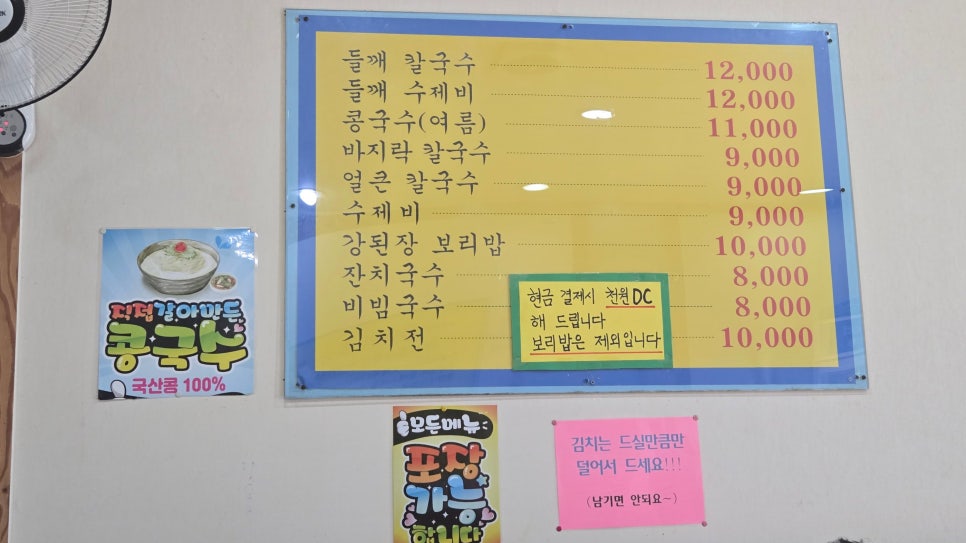 들깨 칼국수 12,000
들깨 수제비 12,000
콩국수(여름) 11,000
바지락 칼국수 9,000
얼큰 칼국수 9,000
수제비 9,000
강된장 보리밥 10,000
잔치국수 8,000
비빔국수 8,000
김치전 10,000
현금 결제시 천원DC
해 드립니다
보리밥은 제외입니다
직접갈아만든
콩국수
국산콩 100%
모든메뉴
포장
가능
합니다
김치는 드실만큼만
덜어서 드세요!!!
(남기면 안되요~)